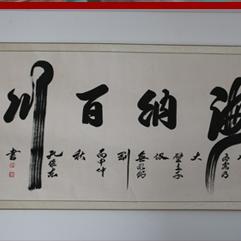 海纳百川
有容乃
大
壁立千
仞
無欲则
刚
丙申仲
秋
書